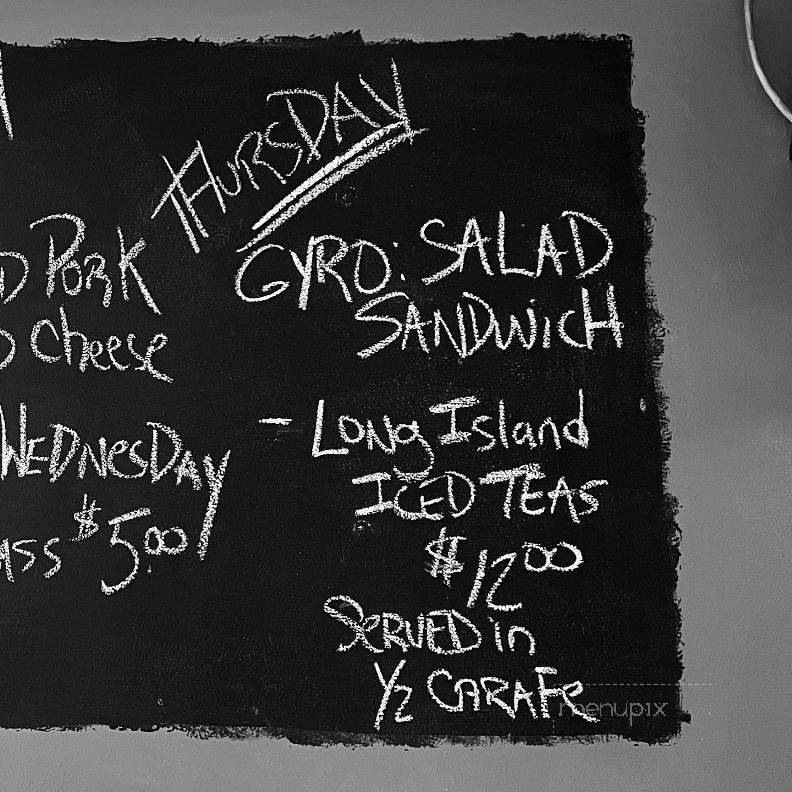 THURSDAY
D PORK
Cheese
WEDNESDAY
ASS $5.00
GYRO: SALAD
SANDWICH
- Long Island
ICED TEAS
$12.00
SERVED in
1/2 CARAFE
menupix